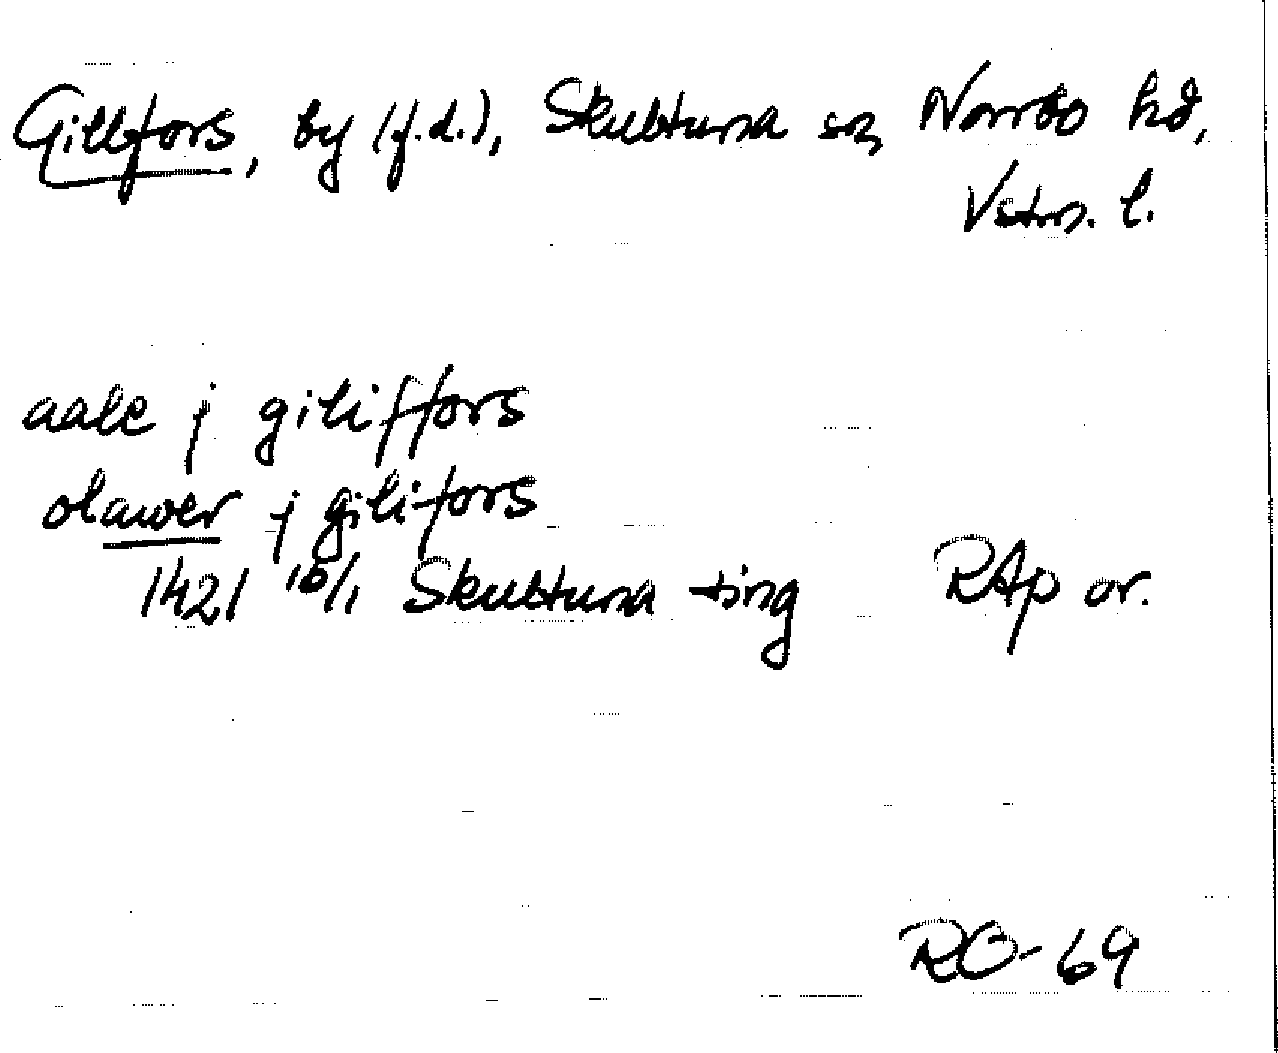 Gillfors, by (f.d.), Skultuna sn, Norrbo hd,
Vstm. l.
aale j giliffors
olawer j gilifors
1421 10/1 Skultuna ting RAp or.
RO-69